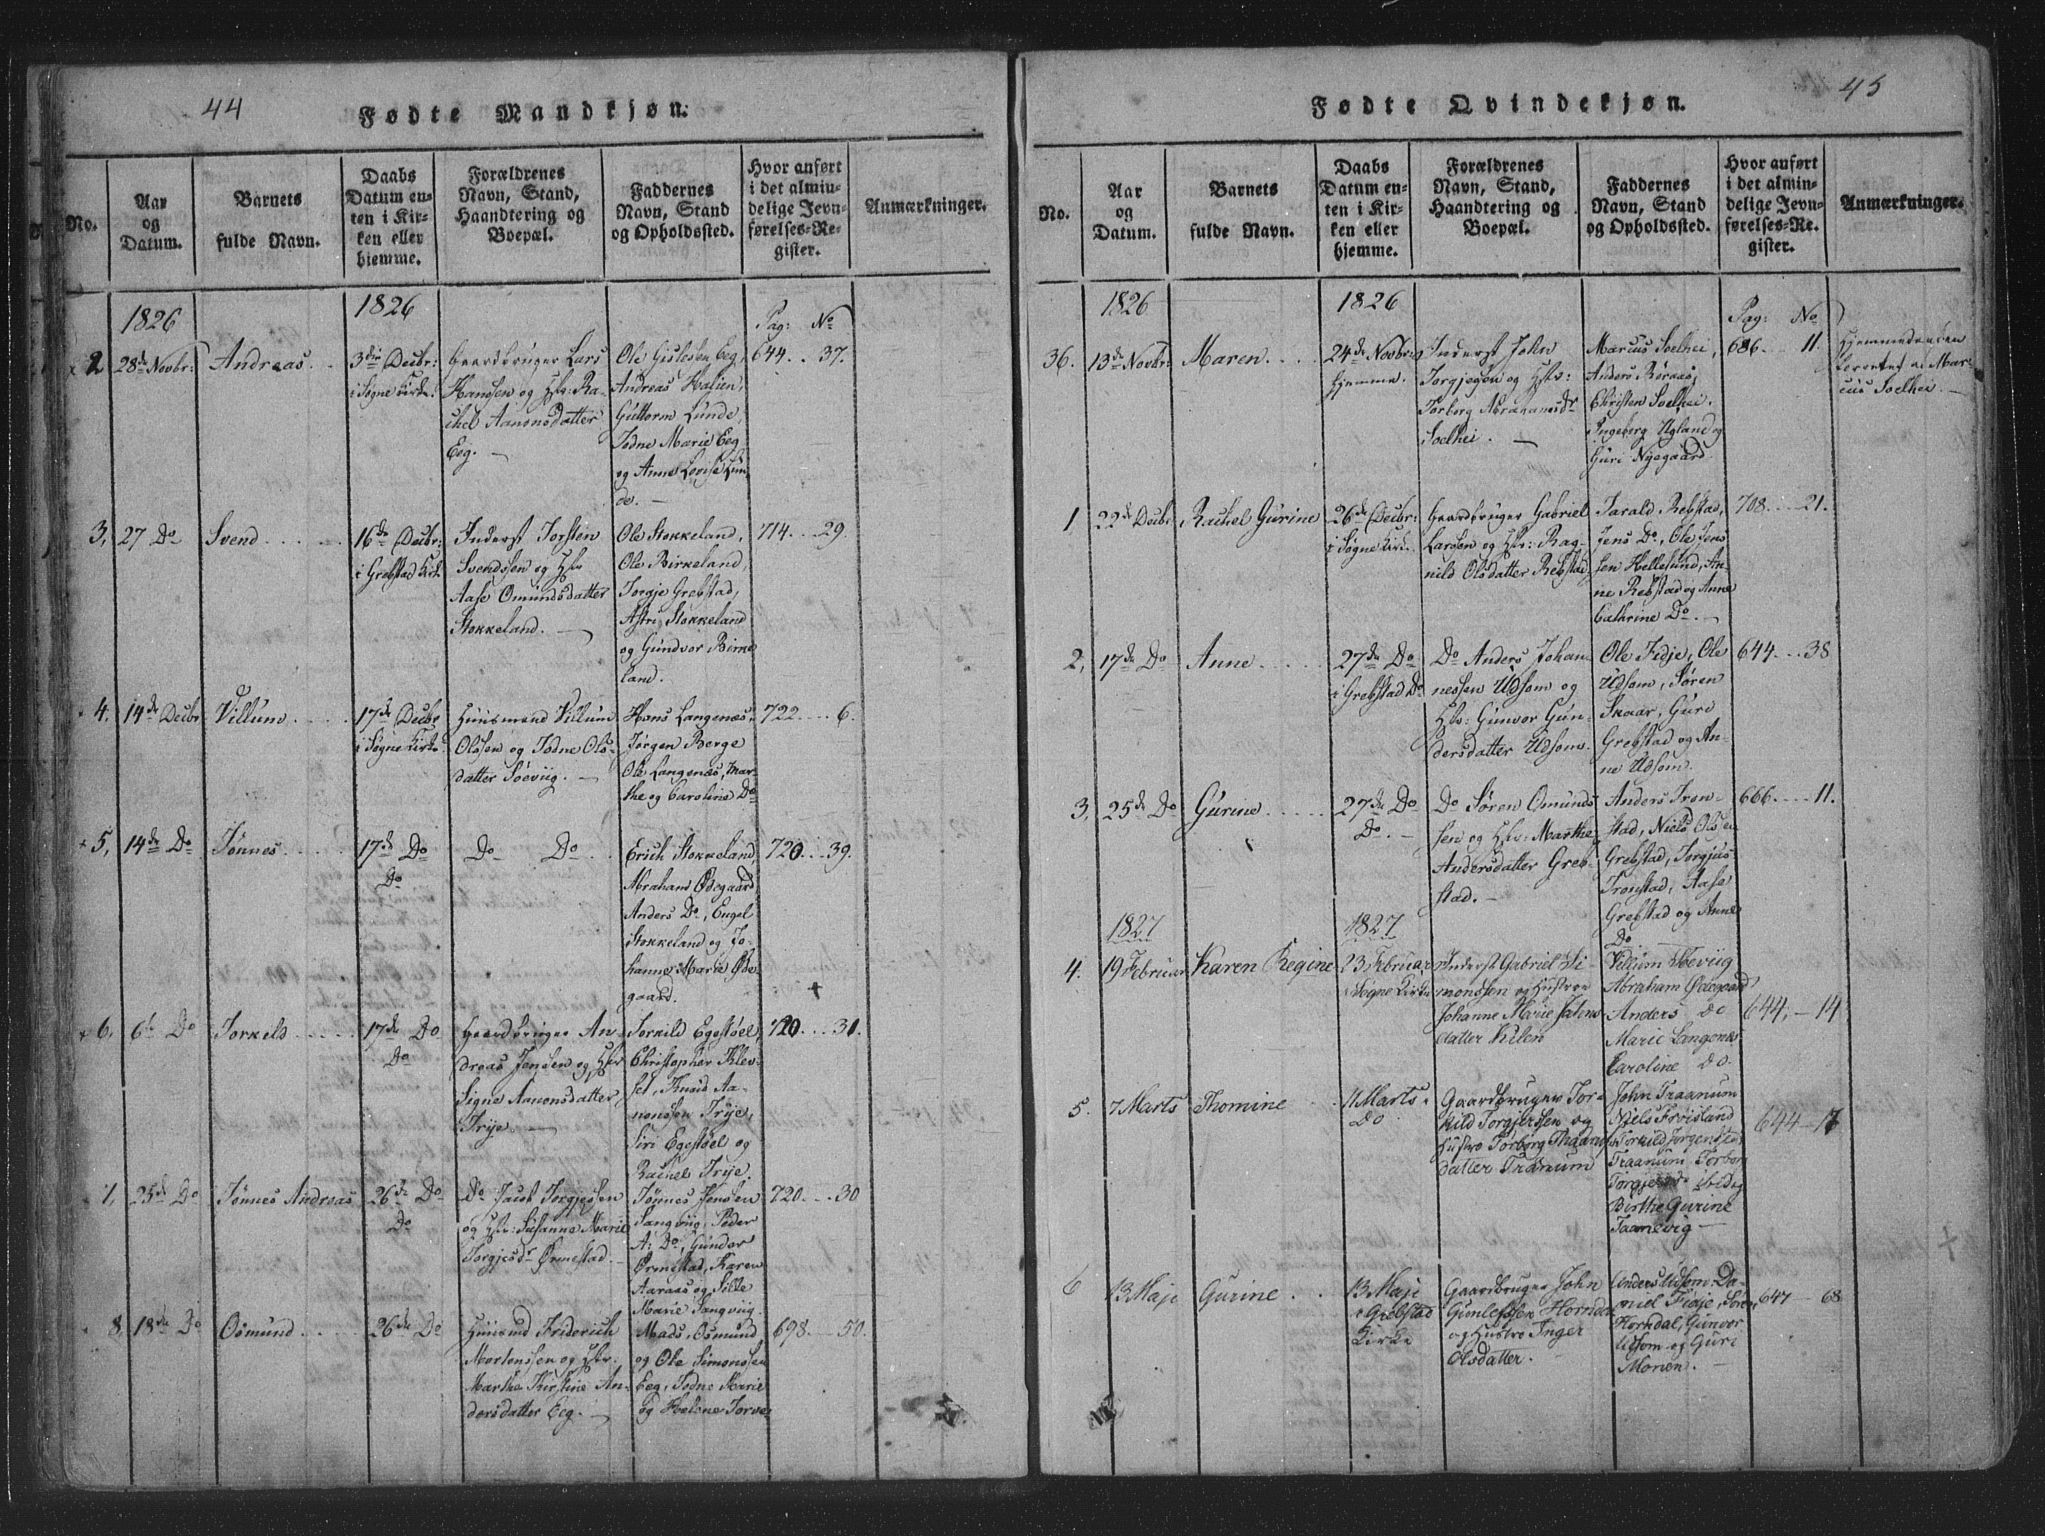 44
Fødte Mandkjøn.
No.
Aar
og
Datum.
Barnets
fulde Navn.
Daabs
Datum en-
ten i Kir-
ken eller
hjemme.
Forældrenes
Navn, Stand,
Haandtering og
Boepæl.
Faddernes
Navn, Stand
og Opholdssted.
Hvor anført
i det almin-
delige Jevn-
førelses-Re-
gister.
Anmærkninger.
1826
1826
Pag: No
2
28de Novbr:
Andreas
3die Decbr:
i Søgne Kirke.
Gaardbruger Lars
Hansen og Hst: Ra-
chel Aanonsdatter
Eeg.
Ole Gislesen Eeg,
Andreas Halien,
Guttorm Lunde,
Todne Marie Eeg
og Anne Lovise Lun-
de.
644 37.
3,
27 Do
Svend
16de Decbr:
i Grebstad Kirke
Inderst Torsten
Svendssen og Hst
Aase Omundsdatter
Stokkeland.
Ole Stokkeland,
Ole Birkeland,
Torgje Grebstad,
Astri Stokkeland
og Gundvor Birke
land.
714 29.
4.
14de Decbr
Villum
17de Decbr
i Søgne Kirke
Huusmand Villum
Olssen og Todne Ols-
datter Søeviig.
Hans Langenæs,
Jørgen Berge
Ole Langenæs, Mar-
the og Caroline Do
722 6.
5,
14de Do
Tønnes
17de Do
Do
Do Do
Erich Stokkeland
Abraham Ødegaard
Anders Do, Engel
Stokkeland og Jo-
hanne Marie Øde
gaard.
720 39.
6,
6te Do
Torkeld
17de Do
Do
Gaardbruger An-
dreas Jensen og Hst
Signe Aanonsdatter
Trye.
Torkild Egestøel,
Christopher Klev-
set, Knud Aa-
nonssen Trye,
Siri Egestøel og
Rachel Trye.
720 31.
7,
25de Do
Tønnes Andreas
26de Do
Do
Do Jacob Torgjesen
og Hst: Susanne Marie
Torgjesdr Ørmestad.
Tønnes Jensen
Langviig, Peder
A: Do, Gunder
Ørmestad, Karen
Aaraas og Sille
Marie Langviig.
720 30
8,
18de Do
Osmund
26de Do
Huusmd Friderich
Mortenssen og Hst:
Marthe Kirstine An-
dersdatter Eeg.
Mads, Osmund
og Ole Simonssen
Eeg, Todne Marie
og Helene Torve
698 50.
45
Fødte Qvindekjøn.
No.
Aar
og
Datum.
Barnets
fulde Navn.
Daabs
Datum en-
ten i Kir-
ken eller
hjemme.
Forældrenes
Navn, Stand,
Haandtering og
Boepæl.
Faddernes
Navn, Stand
og Opholdssted.
Hvor anført
i det almin-
delige Jevn-
førelses-Re-
gister.
Anmærkninger.
1826
1826
Pag: No
36.
13de Novbr:
Maren
24de Novbr:
hjemme.
Inderst John
Torgjesen og Hst:
Torborg Abrahamsdr
Soelhei.
Marcus Soelhei,
Anders Røraas,
Christen Soelhei.
Ingeborg Ugland og
Guri Nyegaard.
686 11.
Hjemmedaaben
forrettet af Mar-
cus Soelhei.
1
22de Decbr:
Rachel Gurine
26de Decbr:
i Søgne Kirke.
Gaardbruger Gabriel
Larssen og Hst: Rag-
nild Olsdatter Rebstad
Tarald Rebstad,
Jens Do, Ole Jens
sen Hellesund, An-
ne Rebstad og Anne
Cathrine Do.
708 21.
2,
17de Do
Anne
27de Do
i Grebstad Do
Do Anders Johan
nessen Udsom og
Hst: Gunvor Gun-
dersdatter Udsom.
Ole Fidje, Ole
Udsom, Søren
Skaar, Guri
Grebstad og An-
ne Udsom.
644 38
3,
25de Do
Gurine
27de Do
Do.
Do Søren Omunds
sen og Hst: Marthe
Andersdatter Greb-
stad.
Anders Tron-
stad, Niels Olsen
Grebstad, Torgjus
Tronstad, Aase
Grebstad og Anne
Do
666 11.
1827
1827
4.
19 Februar
Karen Regine
23 Februar
i Søgne Kirke
Inderst Gabriel Si-
monssen og Hustroe
Johanne Marie
datter Kilen
Villum Søeviig
Abraham Ødegaard
Anders do
Marie Langenes
Caroline do.
644, 14
5.
7 Marts
Thomine
11 Marts
Do
Gaardbruger Tor-
kild Torgjersen og
Hustro Torborg
datter Traanum
John Traanum
Niels Frøisland
Torkild Jørgensen
Traanum Torbor
Birthe Gurine
Taanevig
644
6
13 Maji
Gurine
13 Maji
i Grebstad
Kirke
Gaardbruger John
Gunlefsen Horrdal
og Hustro Inger
Olsdatter.
Anders Udsom, Da-
niel Fidje, Søren
Horrdal, Gunvor
Udsom og Guri
Monen.
647 68